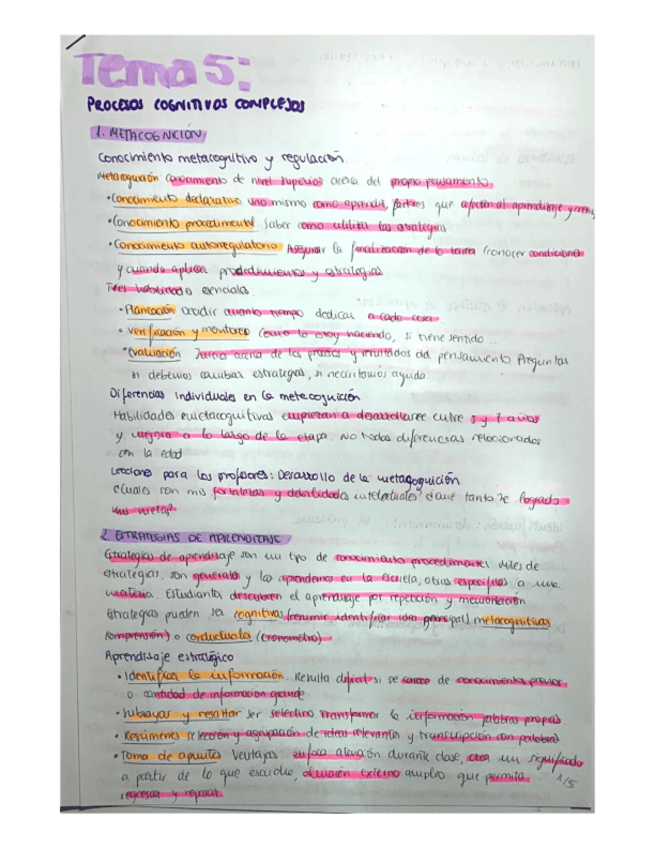 Tema 5:
PROCESOS COGNITIVOS COMPLEJOS
1. METACOGNICIÓN
Conocimiento metacognitivo y regulación
Metacognición conocimiento de nivel superior acerca del propio pensamiento
• Conocimiento declarativo uno mismo como aprendiz, factores que afectan al aprendizaje y
• Conocimiento procedimental saber como utilizar las estrategias
• Conocimiento autorregulatorio Asegurar la finalización de la tarea (conocer condiciones
y cuando aplicar procedimientos y estrategias
Tres habilidades esenciales.
• Planeación decidir cuanto tiempo dedicar a cada cosa
• Verificación y monitoreo como lo estoy haciendo, si tiene sentido...
• Evaluación Juicio acerca de los procesos y resultados del pensamiento Preguntas
si debemos cambiar estrategias, si necesitamos ayuda
Diferencias individuales en la metacognición
Habilidades metacognitivas empiezan a desarrollarse entre 5 y 7 años
y mejora a lo largo de la etapa. No todas diferencias relacionadas
con la edad
Lecciones para los profesores: Desarrollo de la metacognición
¿Cuales son mis fortalezas y debilidades intelectuales? ¿Que tanto he logrado
mis metas?
2. ESTRATEGIAS DE APRENDIZAJE
Estrategias de aprendizaje son un tipo de conocimiento procedimental miles de
estrategias, son generales y las aprendemos en la escuela, otras específicas a una
materia Estudiantes descubren el aprendizaje por repetición y memorización
Estrategias pueden ser cognitivas (resumir identificar idea principal) metacognitivas
(comprensión) o conductuales (cronometro)
Aprendizaje estratégico
• Identifican la información. Resulta dificil si se carece de conocimientos previos
o cantidad de información grande
• Subrayar y resaltar ser selectivo. Transformar la información palabras propias
• Resúmenes selección y agrupación de ideas relevantes y transcripción con palabras
• Toma de apuntes Ventajas: enfoca atención durante clase, crea un significado
a partir de lo que escucho, almacén externo amplio que permita
regresar y repasar
1/5